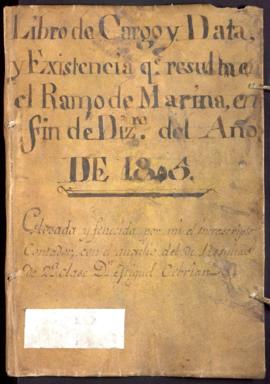 Libro de Cargo y Data,
y Existencia q.e resulta e
el Ramo de Marina, en
fin de Diz.re del Año
DE 180.
Glosada y fenecida por mi el infrascripto
Contador, con el auxilio del de
de 2.a clase D.n Miguel Cebrian